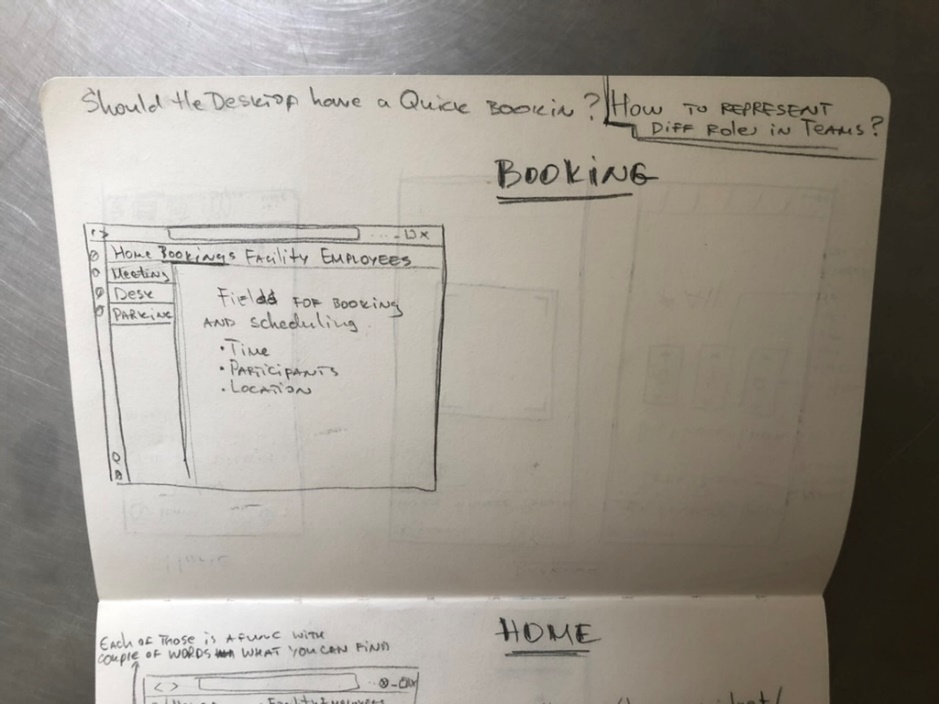 Should the Desktop have a Quick Bookin?
How to represent
Diff Roles in Teams?
BOOKING
< >
Home Bookings Facility Employees
Meeting
Desk
Parking
Fields for booking
and scheduling
• Time
• Participants
• Location
HOME
Each of those is a func with
couple of words what you can find
< >
Facility Employees